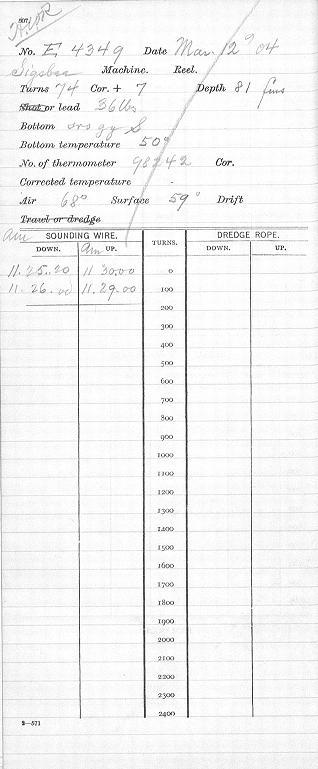 No. E 4349 Date Mar 12" 04
Sigsbee Machine. Reel.
Turns 74 Cor. + 7 Depth 81 fms
Shot or lead 36 lbs.
Bottom gy S
Bottom temperature 50°
No. of thermometer 98242 Cor.
Corrected temperature -
Air 68° Surface 59° Drift
Trawl or dredge
am SOUNDING WIRE. TURNS. DREDGE ROPE.
DOWN. am UP. DOWN. UP.
11. 25..20 11 30.00 0
11. 26.00 11. 29.00 100
200
300
400
500
600
700
800
900
1000
1100
1200
1300
1400
1500
1600
1700
1800
1900
2000
2100
2200
2300
2400
2—571